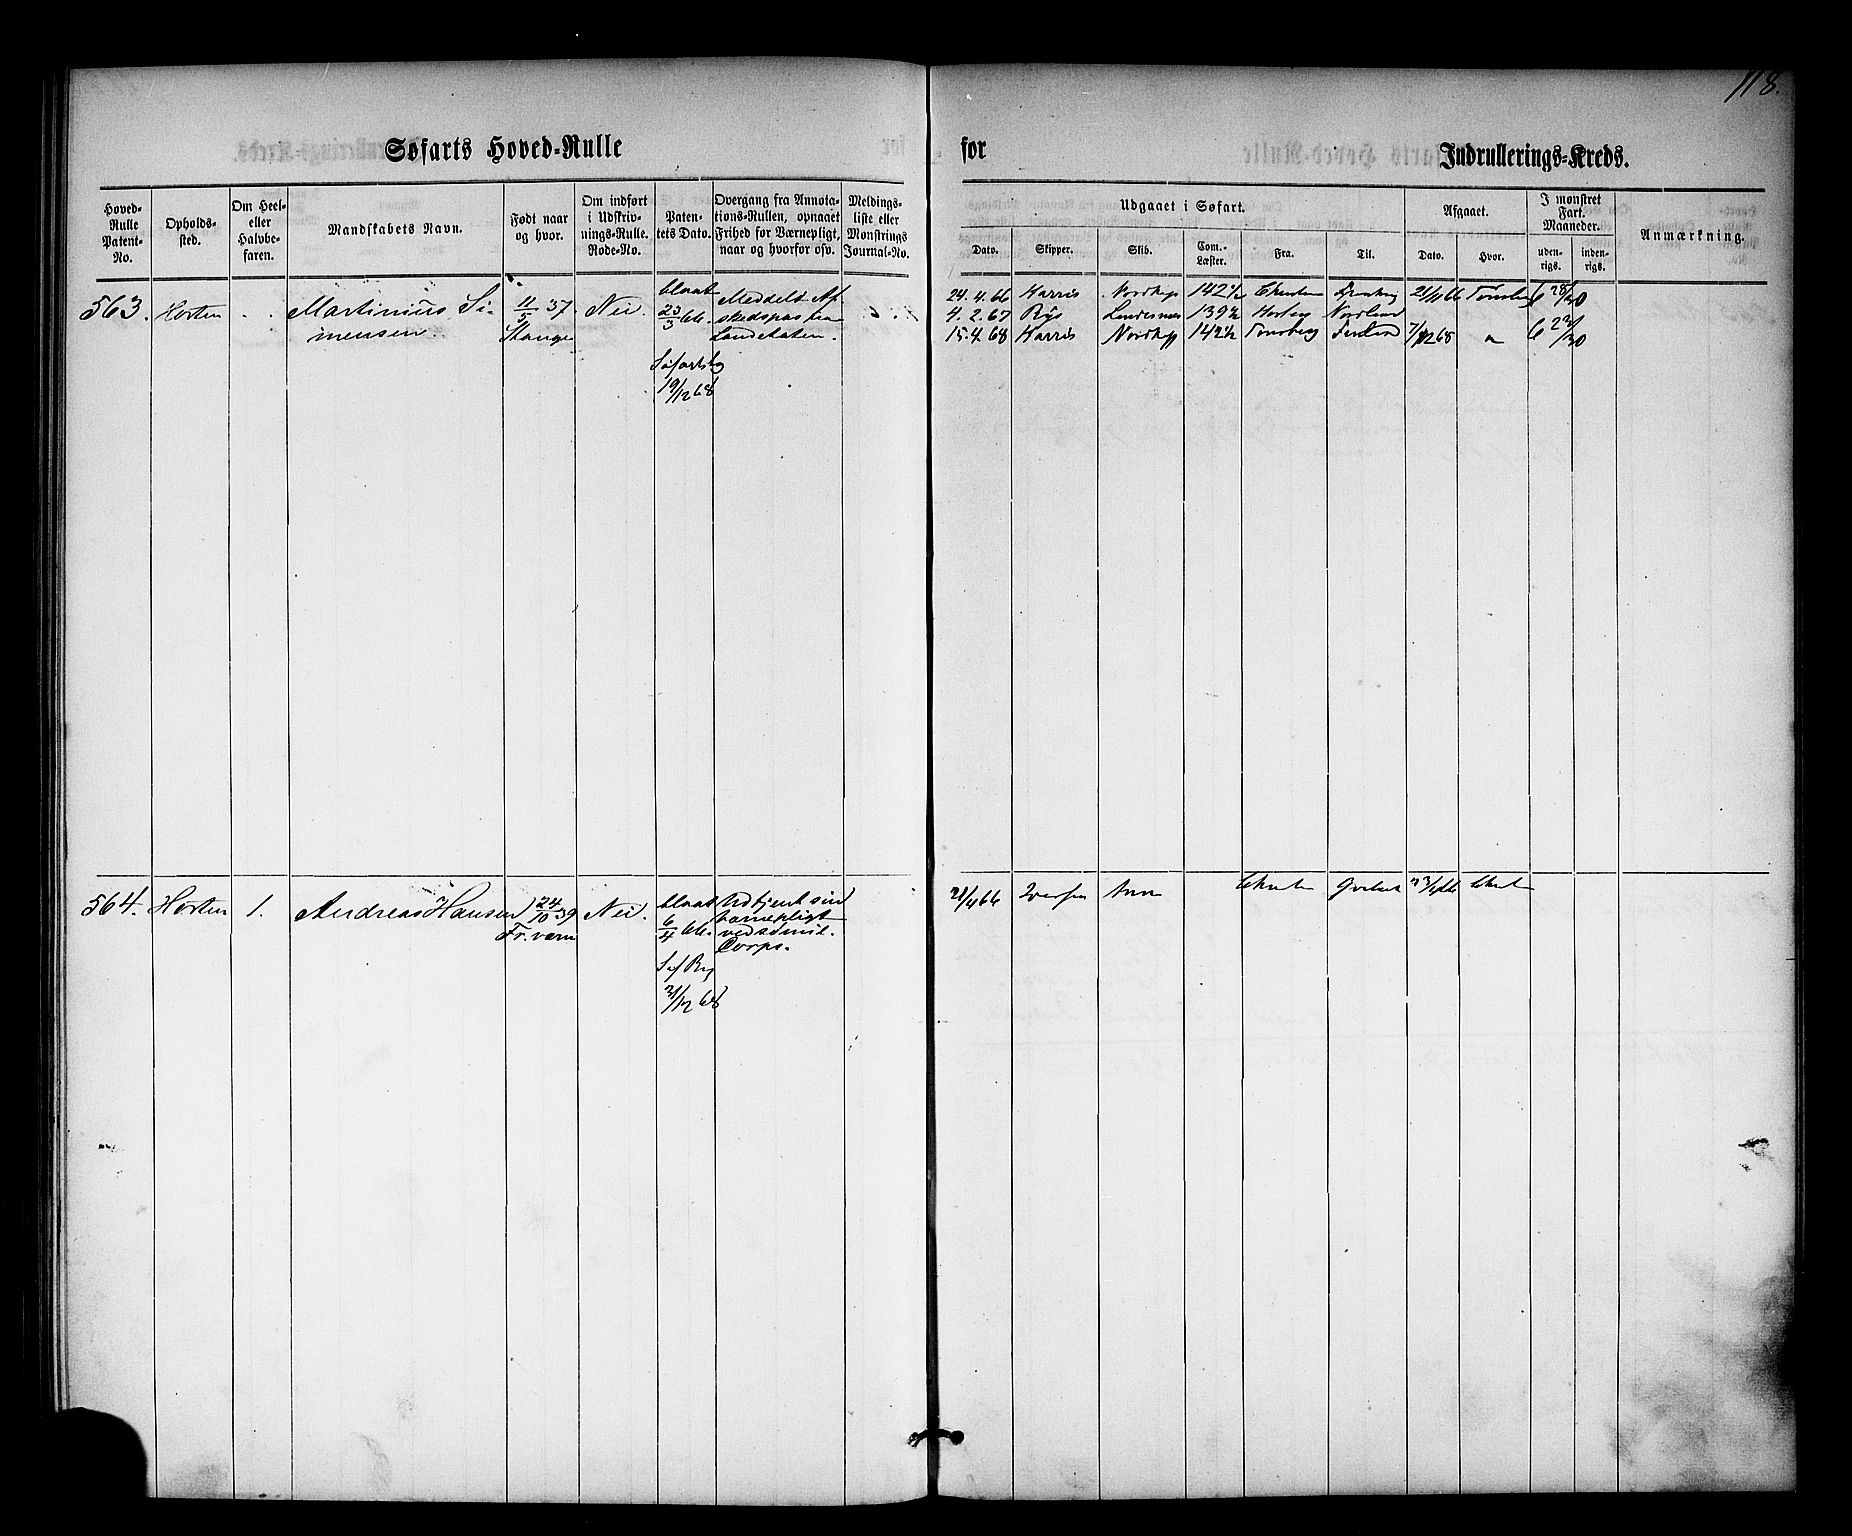 118.
Søfarts Hoved-Rulle for Indrullerings-Kreds.
Hoved-Rulle Patent-No.
Opholds-sted.
Om Heel- eller Halvbe-faren.
Mandskabets Navn.
Født naar og hvor.
Om indført i Udskriv-nings-Rulle. Rode-No.
Paten-tets Dato.
Overgang fra Annota-tions-Rullen, opnaaet Frihed for Værnepligt, naar og hvorfor osv.
Meldings-liste eller Mønstrings Journal-No.
Udgaaet i Søfart.
Dato.
Skipper.
Skib.
Com.-Læster.
Fra.
Til.
Afgaaet.
Dato.
Hvor.
I mønstret Fart. Maaneder.
uden-rigs.
inden-rigs.
Anmærkning.
563. Horten Martinius Si-
mensen
11/5 37.
Stange
Nei.
blaat
23/3 66.
Søfartsbg
19/12 68
Meddelt Af
skedspas fra
Landetaten.
24.4.66 Harris Nordkap 142½ 21/11 66 Tønsberg 6 28/30
4.2.67 Rÿs Lindesnes 139½ Norbrg Nordland
15.4.68 Harris Nordkap 142½ Tønsberg 7/12 68 6 23/30
564. Horten 1. Andreas Hansen
24/10 39
Fr. værn
Nei.
blaat
6/4 66.
Søf Bg
31/12 68
Udtjent sin
værnepligt
ved sømil.
Corps.
21/4 66 Iversen